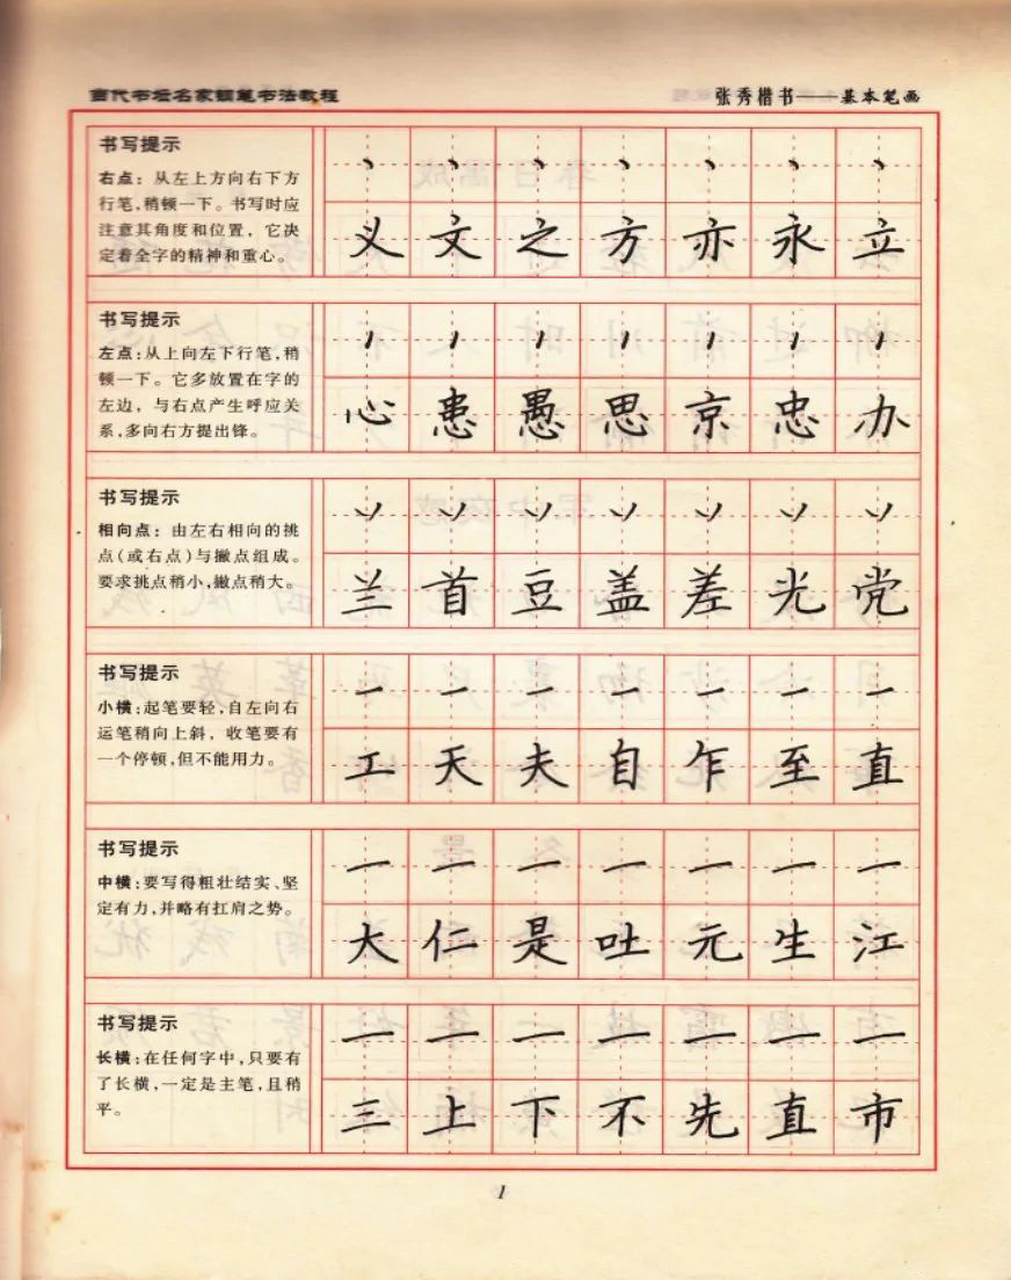 当代书坛名家钢笔书法教程
张秀楷书——基本笔画
书写提示
右点：从左上方向右下方
行笔,稍顿一下。书写时应
注意其角度和位置，它决
定着全字的精神和重心。
丶 丶 丶 丶 丶 丶 丶
义 文 之 方 亦 永 立
书写提示
左点:从上向左下行笔,稍
顿一下。它多放置在字的
左边，与右点产生呼应关
系,多向右方提出锋。
心 患 愚 思 京 忠 办
书写提示
相向点：由左右相向的挑
点(或右点)与撇点组成。
要求挑点稍小,撇点稍大。
兰 首 豆 盖 差 光 党
书写提示
小横:起笔要轻,自左向右
运笔稍向上斜，收笔要有
一个停顿,但不能用力。
一 一 一 一 一 一 一
工 天 夫 自 乍 至 直
书写提示
中横:要写得粗壮结实、坚
定有力,并略有扛肩之势。
一 一 一 一 一 一 一
大 仁 是 吐 元 生 江
书写提示
长横:在任何字中,只要有
了长横,一定是主笔,且稍
平。
一 一 一 一 一 一 一
三 上 下 不 先 直 市
1